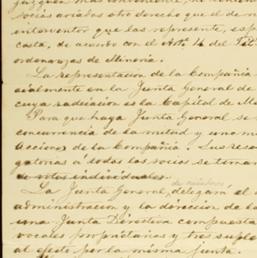 juzguen mas conveniente, ni tendrán
socios avisados otro derecho que el de n
interventor que las represente, esp
casta, de acuerdo con el Artº 4 del Tit
ordenanzas de Minería.
La representacion de la Compañia
cialmente en la Junta General de
cuya radiacion es la Capital de M
Para que haya Junta General se
concurrencia de la mitad y una m
acciones de la Compañia. Sus reso
gatorias a todas los socios se toma
de votos individuales.
de miembros
La Junta General, delegará el
administracion y la direccion de l
una Junta Directiva compuesta
vocales propietarios y tres suple
al efecto por la misma junta.